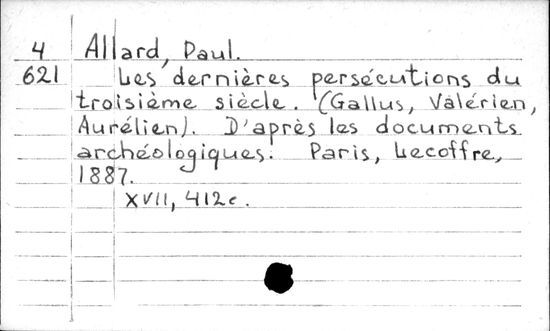 4 Allard, Paul.
621 Les dernières persécutions du
troisième siècle. (Gallus, Valérien,
Aurélien). D'après les documents
archéologiques. Paris, Lecoffre,
1887.
XVII, 412c.